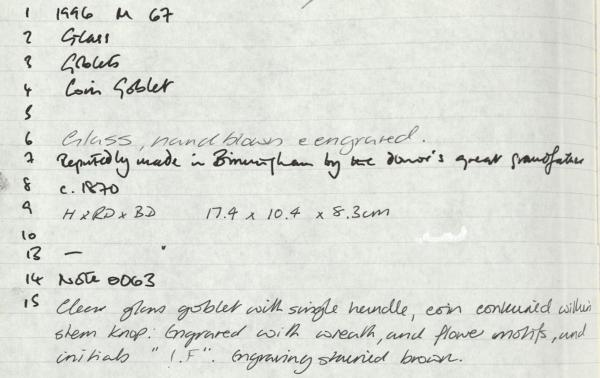 1 1996 M 67
2 Glass
3 Goblets
4 Coin Goblet
5
6 Glass, handblown & engraved.
7 Reputedly made in Birmingham by the donor's great grandfather
8 c. 1870
9 H x RD x BD 17.4 x 10.4 x 8.3cm
10
13 — "
14 Note 0063
15 Clear glass goblet with single handle, coin contained within
stem knop. Engraved with wreath, and flower motifs, and
initials "I.F". Engraving stained brown.